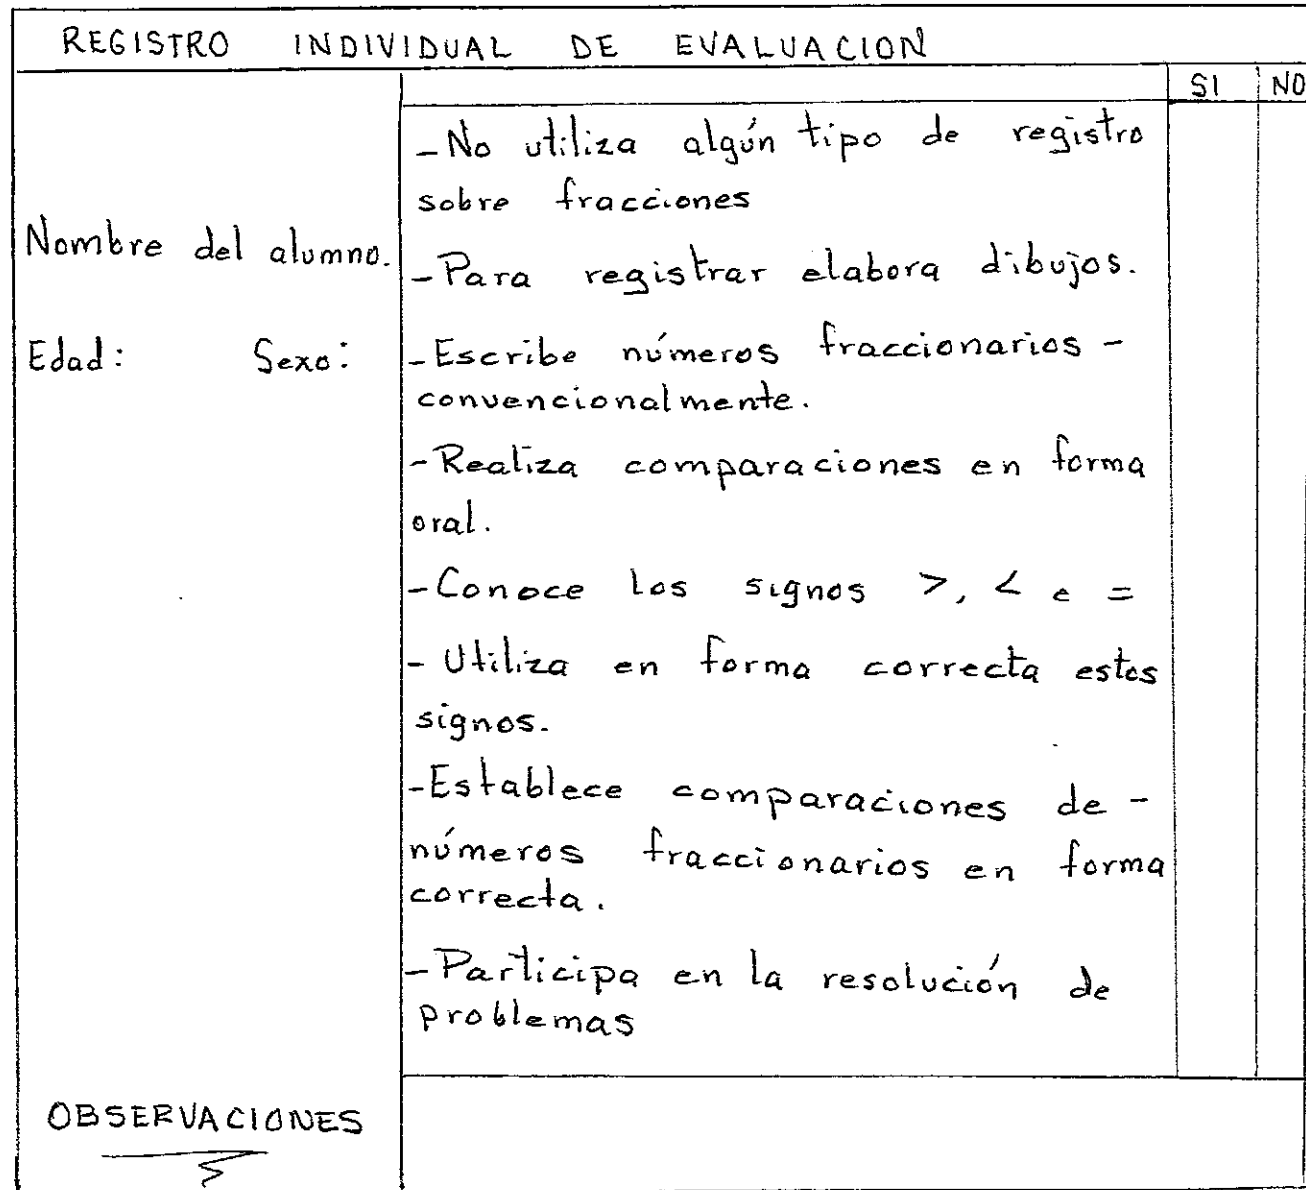 REGISTRO INDIVIDUAL DE EVALUACION
SI NO
Nombre del alumno.
Edad: Sexo:
-No utiliza algún tipo de registro
sobre fracciones
-Para registrar elabora dibujos.
-Escribe números fraccionarios -
convencionalmente.
-Realiza comparaciones en forma
oral.
-Conoce los signos >, < e =
- Utiliza en forma correcta estos
signos.
-Establece comparaciones de -
números fraccionarios en forma
correcta.
-Participa en la resolución de
problemas
OBSERVACIONES